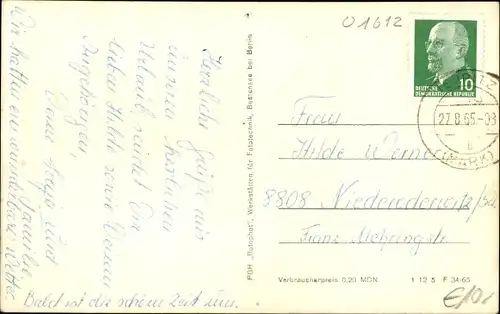 Herzliche Grüße aus
unserem herrlichen
Urlaub sendet Dir
liebe Hilde sowie Deinen
Angehörigen
Deine und
Familie
Wir hatten ein wunderbares Wetter
Bald ist die schöne Zeit um.
PGH „Rotophot“, Werkstätten, für Fototechnik, Bestensee bei Berlin
01612
10
DEUTSCHE
DEMOKRATISCHE REPUBLIK
27.8.65-08
(MARK)
Frau
Hilde Werner
8808 Niederoderwitz/Sa
Franz Mehringstr.
Verbraucherpreis 0,20 MDN 1 12 5 F 34/65